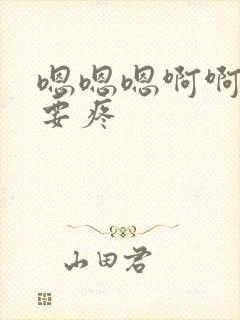 嗯嗯嗯啊啊
要疼
山田君